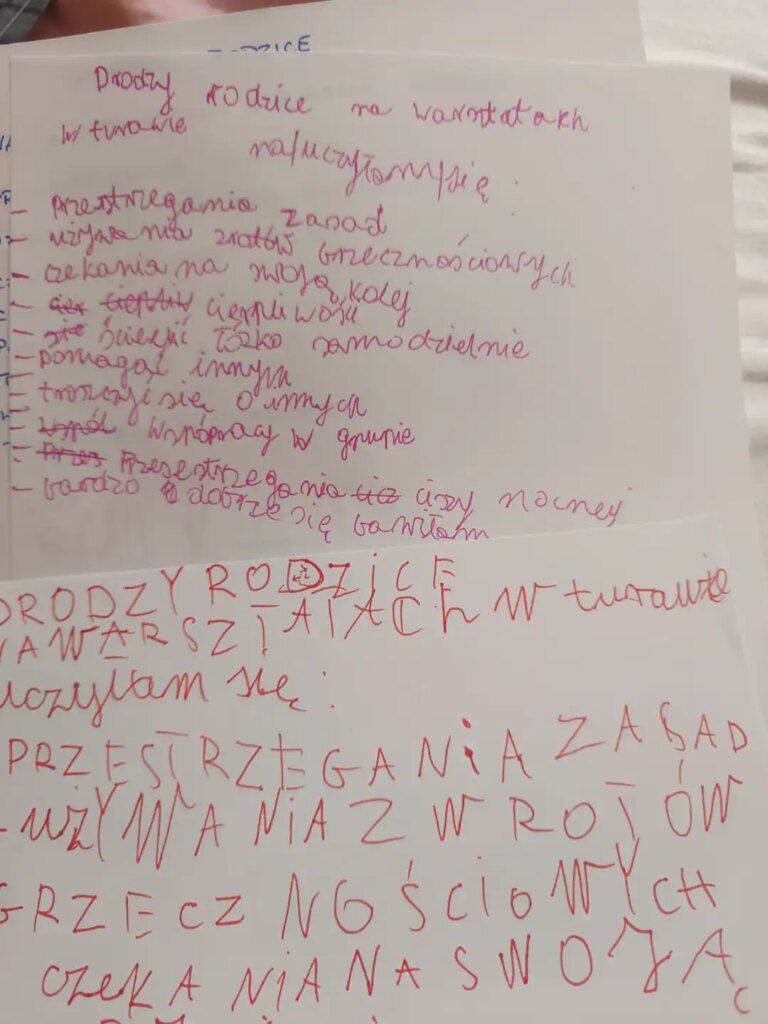 RODZICE
Drodzy rodzice na warsztatach
w turawie
na/uczyłam/się
- przestrzegania zasad
- używania zrotów grzecznościowych
- czekania na swoją kolej
- cierpliwości
- ścielić łóżko samodzielnie
- pomagać innym
- troszczyć się o innych
- współpracy w grupie
- Przesestrzegania ciszy nocnej
- bardzo dobrze się bawiłam
DRODZY RODZICE
NA WARSZTATACH w turawie
uczyłam się:
PRZESTRZEGANIA ZASAD
- UŻYWANIA ZWROTÓW
GRZECZNOŚCIOWYCH
CZEKANIA NA SWOJĄ